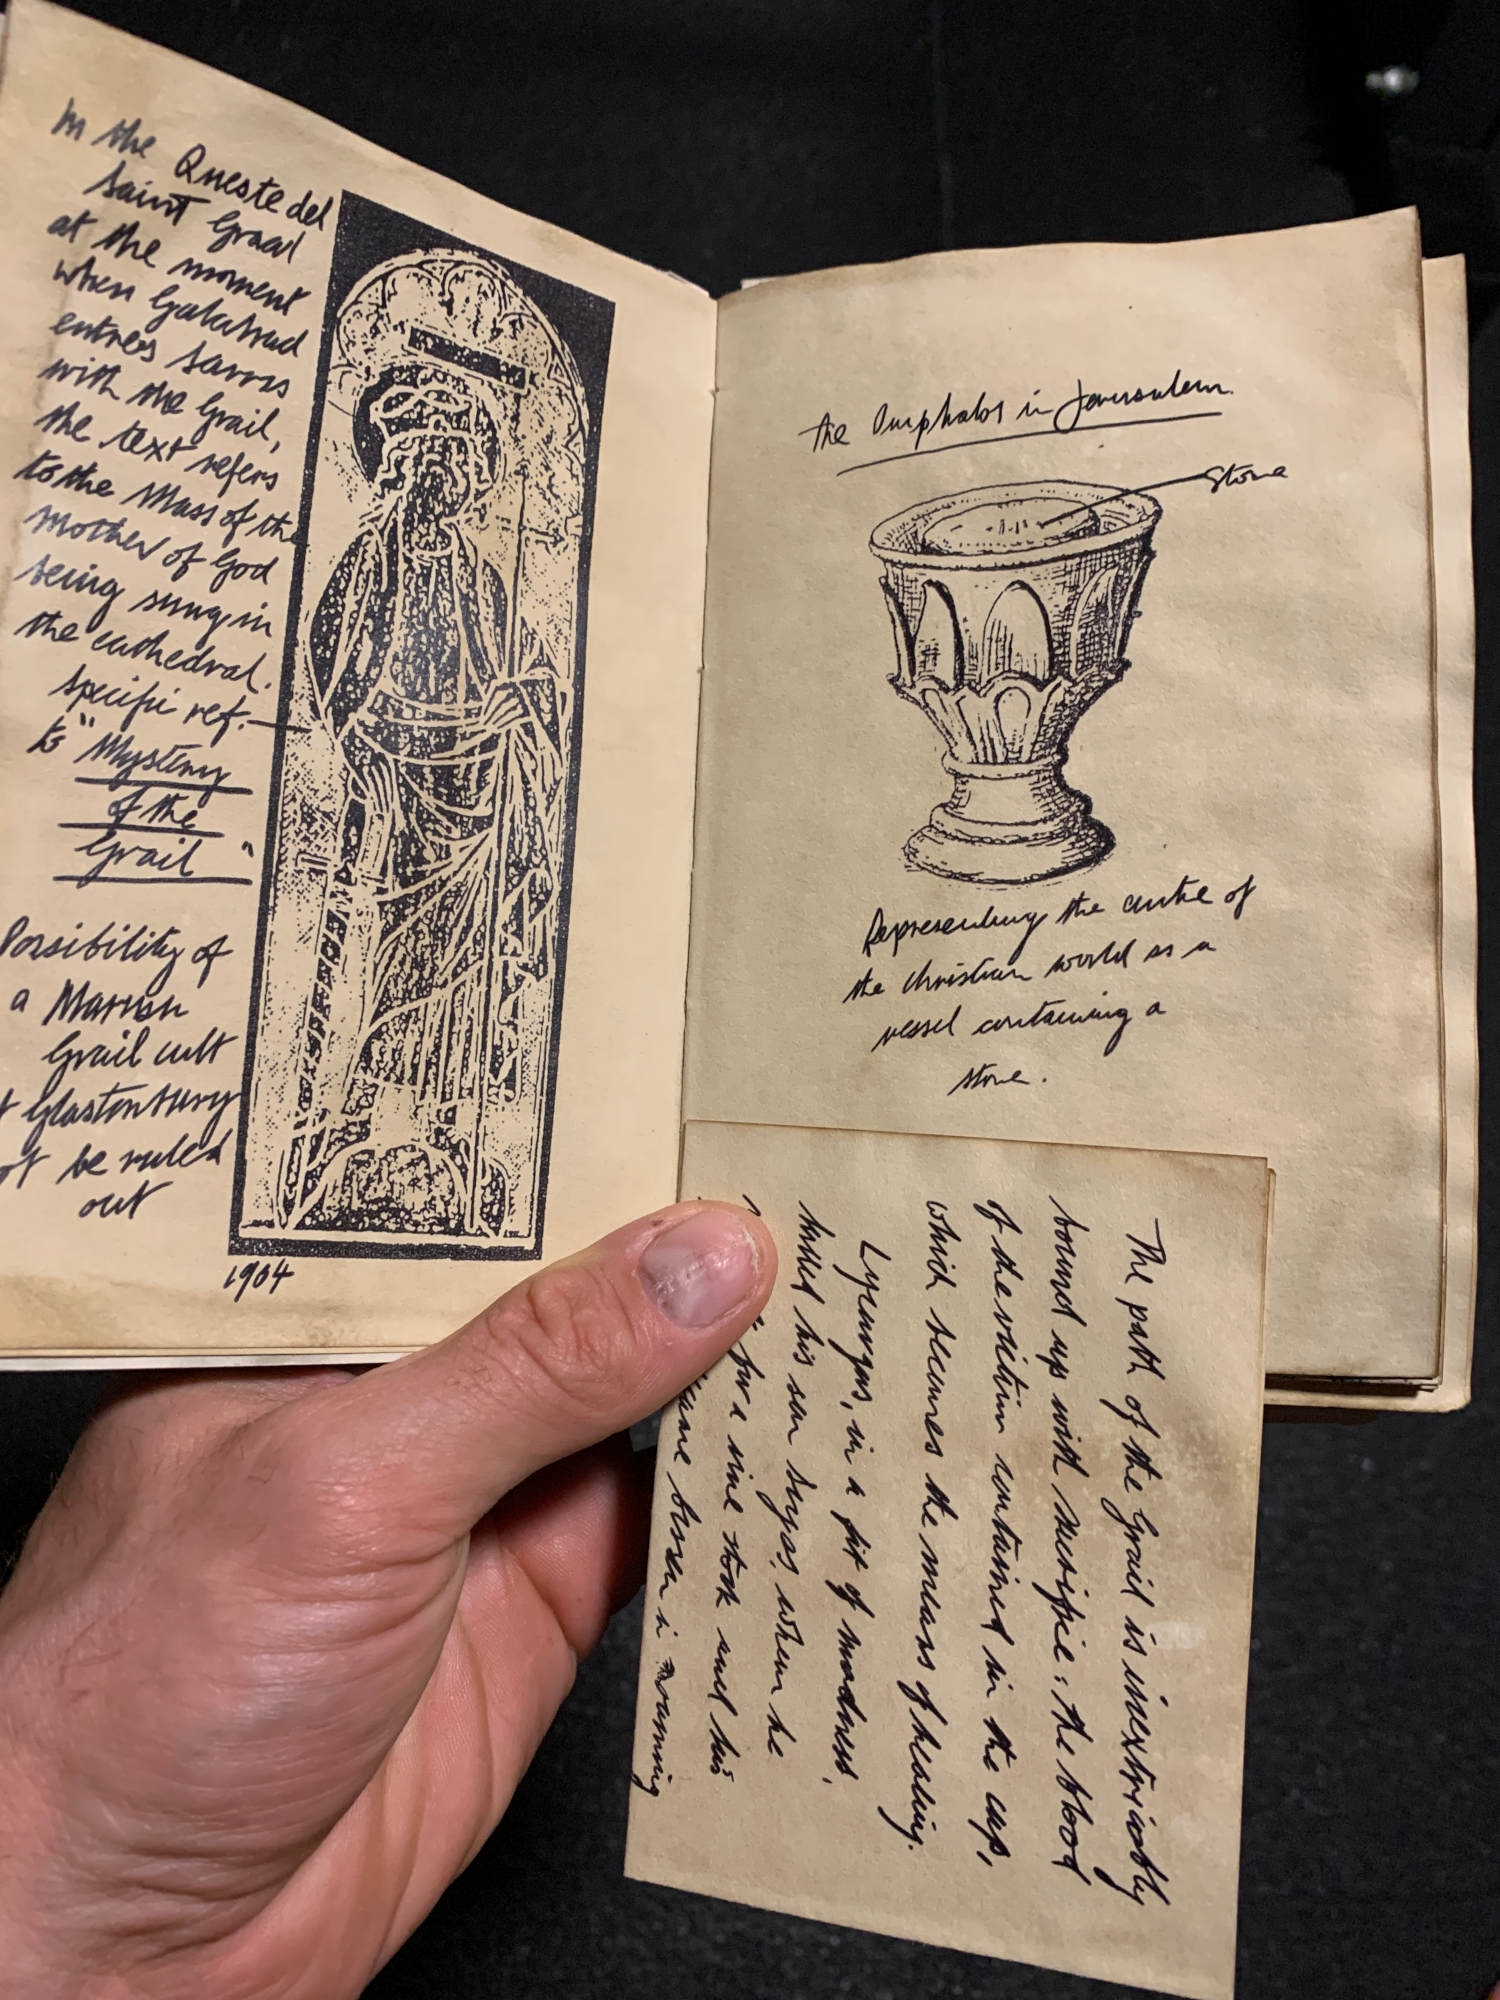 In the Queste del
Saint Graal
at the moment
when Galahad
enters Sarras
with the Grail,
the text refers
to the Mass of the
Mother of God
being sung in
the cathedral.
specific ref.
to "Mystery
of the
Grail"
Possibility of
a Marian
Grail cult
Glastonbury
be ruled
out
1904
The Omphalos in Jerusalem
Stone
Representing the centre of
the Christian world as a
vessel containing a
stone.
The path of the Grail is inextricably
bound up with sacrifice: the blood
of the victim contained in the cup,
which becomes the means of healing.
Lycurgus, in a fit of madness,
killed his son Dryas, when he
for a vine stock and his
in roaming